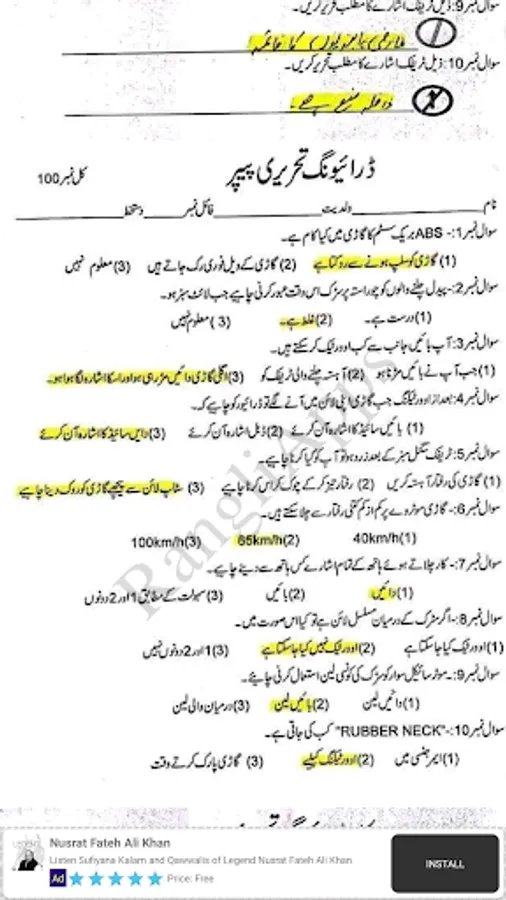 سوال نمبر9: ذیل ٹریفک اشارے کا مطلب تحریر کریں۔
عارضی پابندیوں کا خاتمہ
سوال نمبر10: ذیل ٹریفک اشارے کا مطلب تحریر کریں۔
داخلہ منع ہے۔
ڈرائیونگ تحریری پیپر
کل نمبر 100
نام ولدیت فائل نمبر دستخط
سوال نمبر1:- ABS بریک سسٹم کا گاڑی میں کیا کام ہے۔
(1) گاڑی کو سلپ ہونے سے روکتا ہے (2) گاڑی کے ویل فوری رک جاتے ہیں (3) معلوم نہیں
سوال نمبر2:- پیدل چلنے والوں کو چوراستہ پر سڑک اس وقت عبور کرنی چاہیے جب لائٹ سبز ہو۔
(1) درست ہے۔ (2) غلط ہے۔ (3) معلوم نہیں
سوال نمبر3: آپ بائیں جانب سے کب اوور ٹیک کر سکتے ہیں۔
(1) جب آپ نے بائیں مڑنا ہو (2) آہستہ چلنے والی ٹریفک کو (3) اگلی گاڑی دائیں مڑ رہی ہو اور اسکا اشارہ لگا ہوا ہو۔
سوال نمبر4: بعد از اوور ٹیکنگ جب گاڑی اپنی لائن میں آنے لگے تو ڈرائیور کو چاہیے کہ۔
(1) بائیں سائیڈ کا اشارہ آن کرئے (2) ڈبل اشارہ آن کرئے (3) دائیں سائیڈ کا اشارہ آن کرئے
سوال نمبر5: ٹریفک سگنل سبز کے بعد زرد ہو تو آپ کو کیا کرنا چاہیے۔
(1) گاڑی کی رفتار آہستہ کریں (2) رفتار تیز کر کے چوک کراس کرنا چاہیے (3) سٹاپ لائن سے پیچھے گاڑی کو روک دینا چاہیے
سوال نمبر6:- گاڑی موٹروے پر کم از کم کتنی رفتار سے چلا سکتے ہیں۔
(1)40km/h (2)65km/h (3)100km/h
سوال نمبر7:- کار چلاتے ہوئے ہاتھ کے تمام اشارے کس ہاتھ سے دینے چاہیے۔
(1) دائیں (2) بائیں (3) سہولت کے مطابق 1 اور 2 دونوں
سوال نمبر8:- اگر سڑک کے درمیان مسلسل لائن ہے تو کیا اس صورت میں۔
(1) اوور ٹیک کیا جا سکتا ہے (2) اوور ٹیک نہیں کیا جا سکتا ہے (3) 1 اور 2 دونوں نہیں
سوال نمبر9:- موٹر سائیکل سوار کو سڑک کی کونسی لین استعمال کرنی چاہیئے۔
(1) دائیں لین (2) بائیں لین (3) درمیان والی لین
سوال نمبر10:- "RUBBER NECK" کب کی جاتی ہے۔
(1) ایمرجنسی میں (2) اوور ٹیکنگ کیلیے (3) گاڑی پارک کرتے وقت
Rangli Apps
Nusrat Fateh Ali Khan
Listen Sufiyana Kalam and Qawwalis of Legend Nusrat Fateh Ali Khan
Ad Price: Free
INSTALL